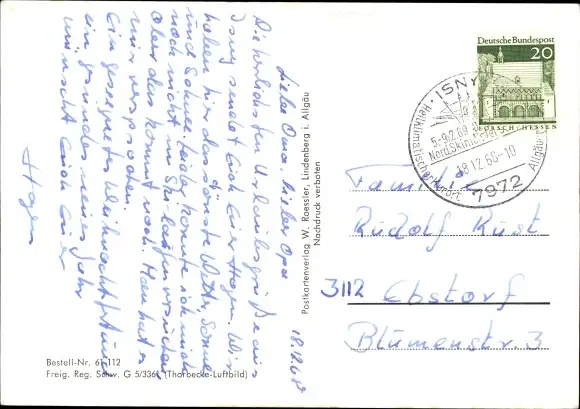 18.12.68
Liebe Oma, lieber Opa
Die herzlichsten Urlaubsgrüße aus
Isny sendet Euch Euer Hagen. Wir
haben hier das schönste Wetter, Schnee
und Sonne. Leider konnte ich mich
noch nicht im Skilaufen versuchen
aber das kommt noch. Man hat es
mir versprochen.
Ein gesegnetes Weihnachtsfest und
ein gesundes neues Jahr
wünscht Euch Euer
Hagen
Bestell-Nr. 61 112
Freig. Reg. Schw. G 5/336 (Thorbecke-Luftbild)
Postkartenverlag W. Roessler, Lindenberg i. Allgäu
Nachdruck verboten
Deutsche Bundespost
20
LORSCH/HESSEN
ISNY
5.-9.2.69
Nord. Skim
18.12.68-10
Heilklimatischer Kurort
Allgäu
7972
Familie
Rudolf Küst
3112 Ebstorf
Blumenstr. 3